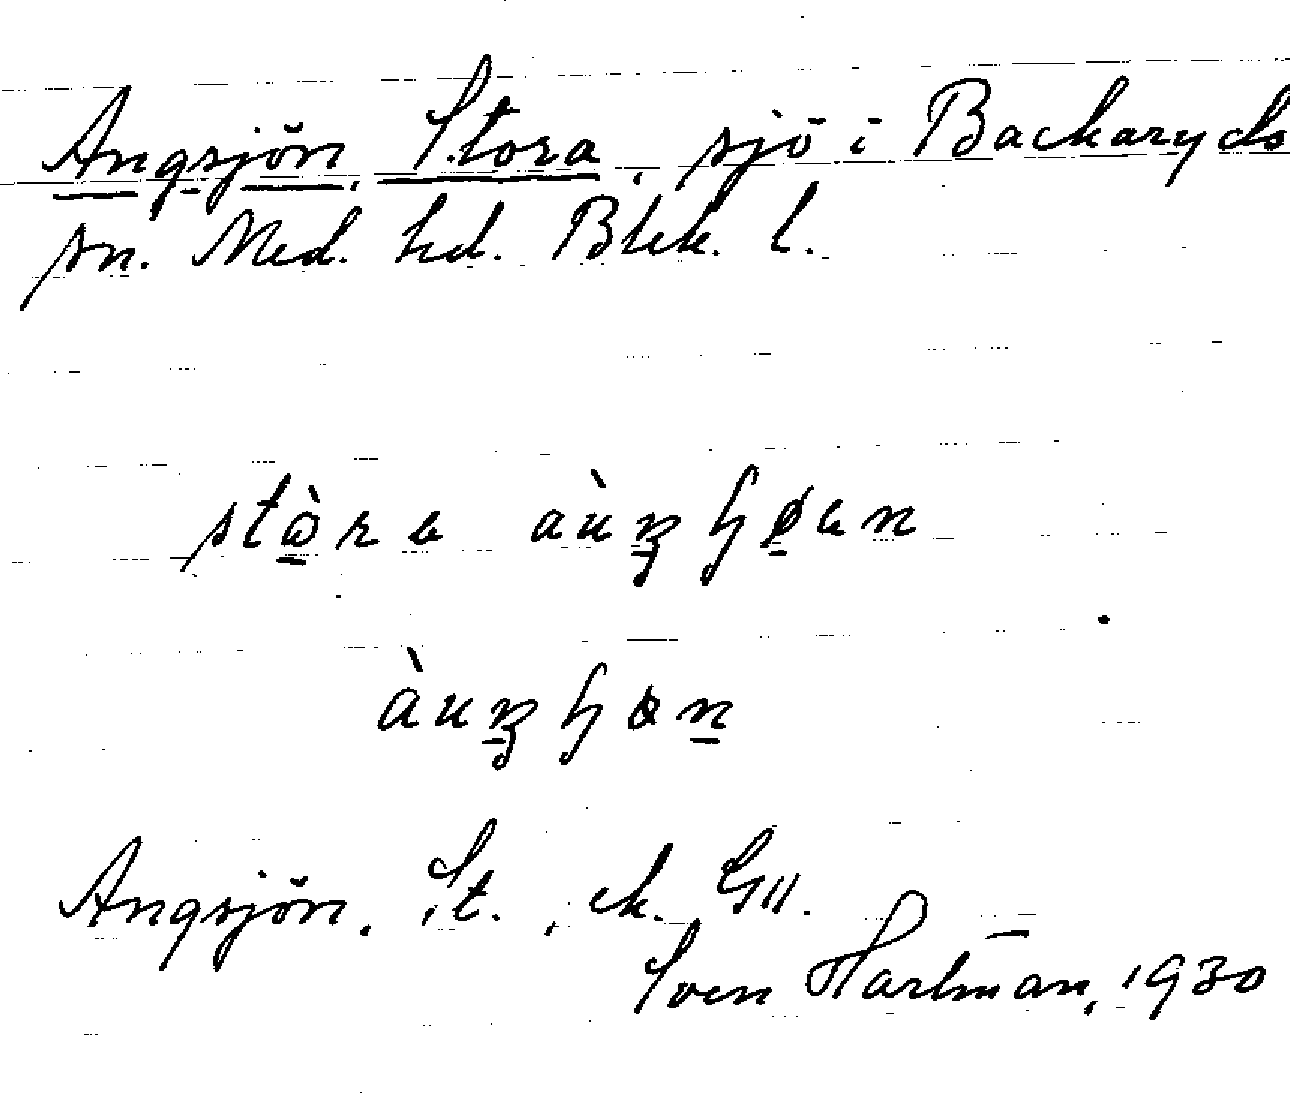 Angsjön, Stora, sjö i Backaryds
sn. Med. hd. Blek. l.
stòra àuŋɧøan
àuŋɧøn
Angsjön, St., ek. GII.
Sven Hartman, 1930